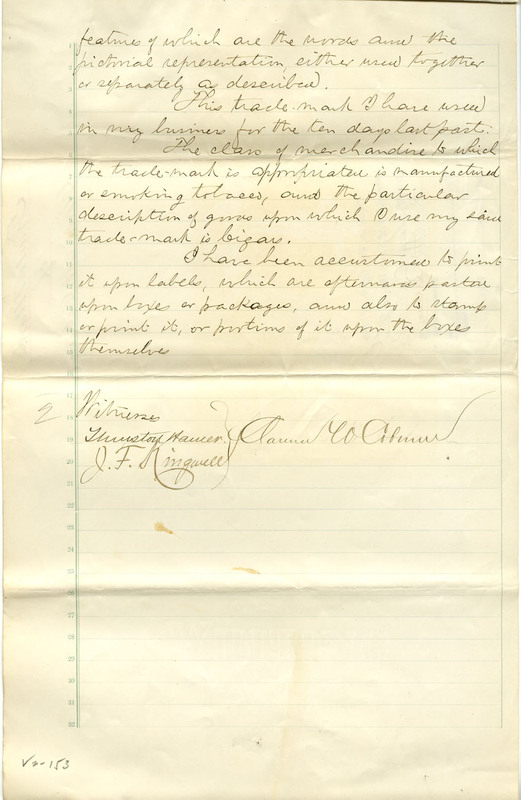 features of which are the words and the
pictorial representation, either used together
or separately as described.
This trade-mark I have used
in my business for the ten days last past.
The class of merchandise to which
the trade-mark is appropriated is manufactured
or smoking tobacco, and the particular
description of goods upon which I use my said
trade-mark is cigars.
I have been accustomed to print
it upon labels, which are afterwards pasted
upon boxes or packages, and also to stamp
or print it, or portions of it upon the boxes
themselves
2
Witness
J. F. Ringwell
W
1
2
3
4
5
6
7
8
9
10
11
12
13
14
15
16
17
18
19
20
21
22
23
24
25
26
27
28
29
30
31
32
153